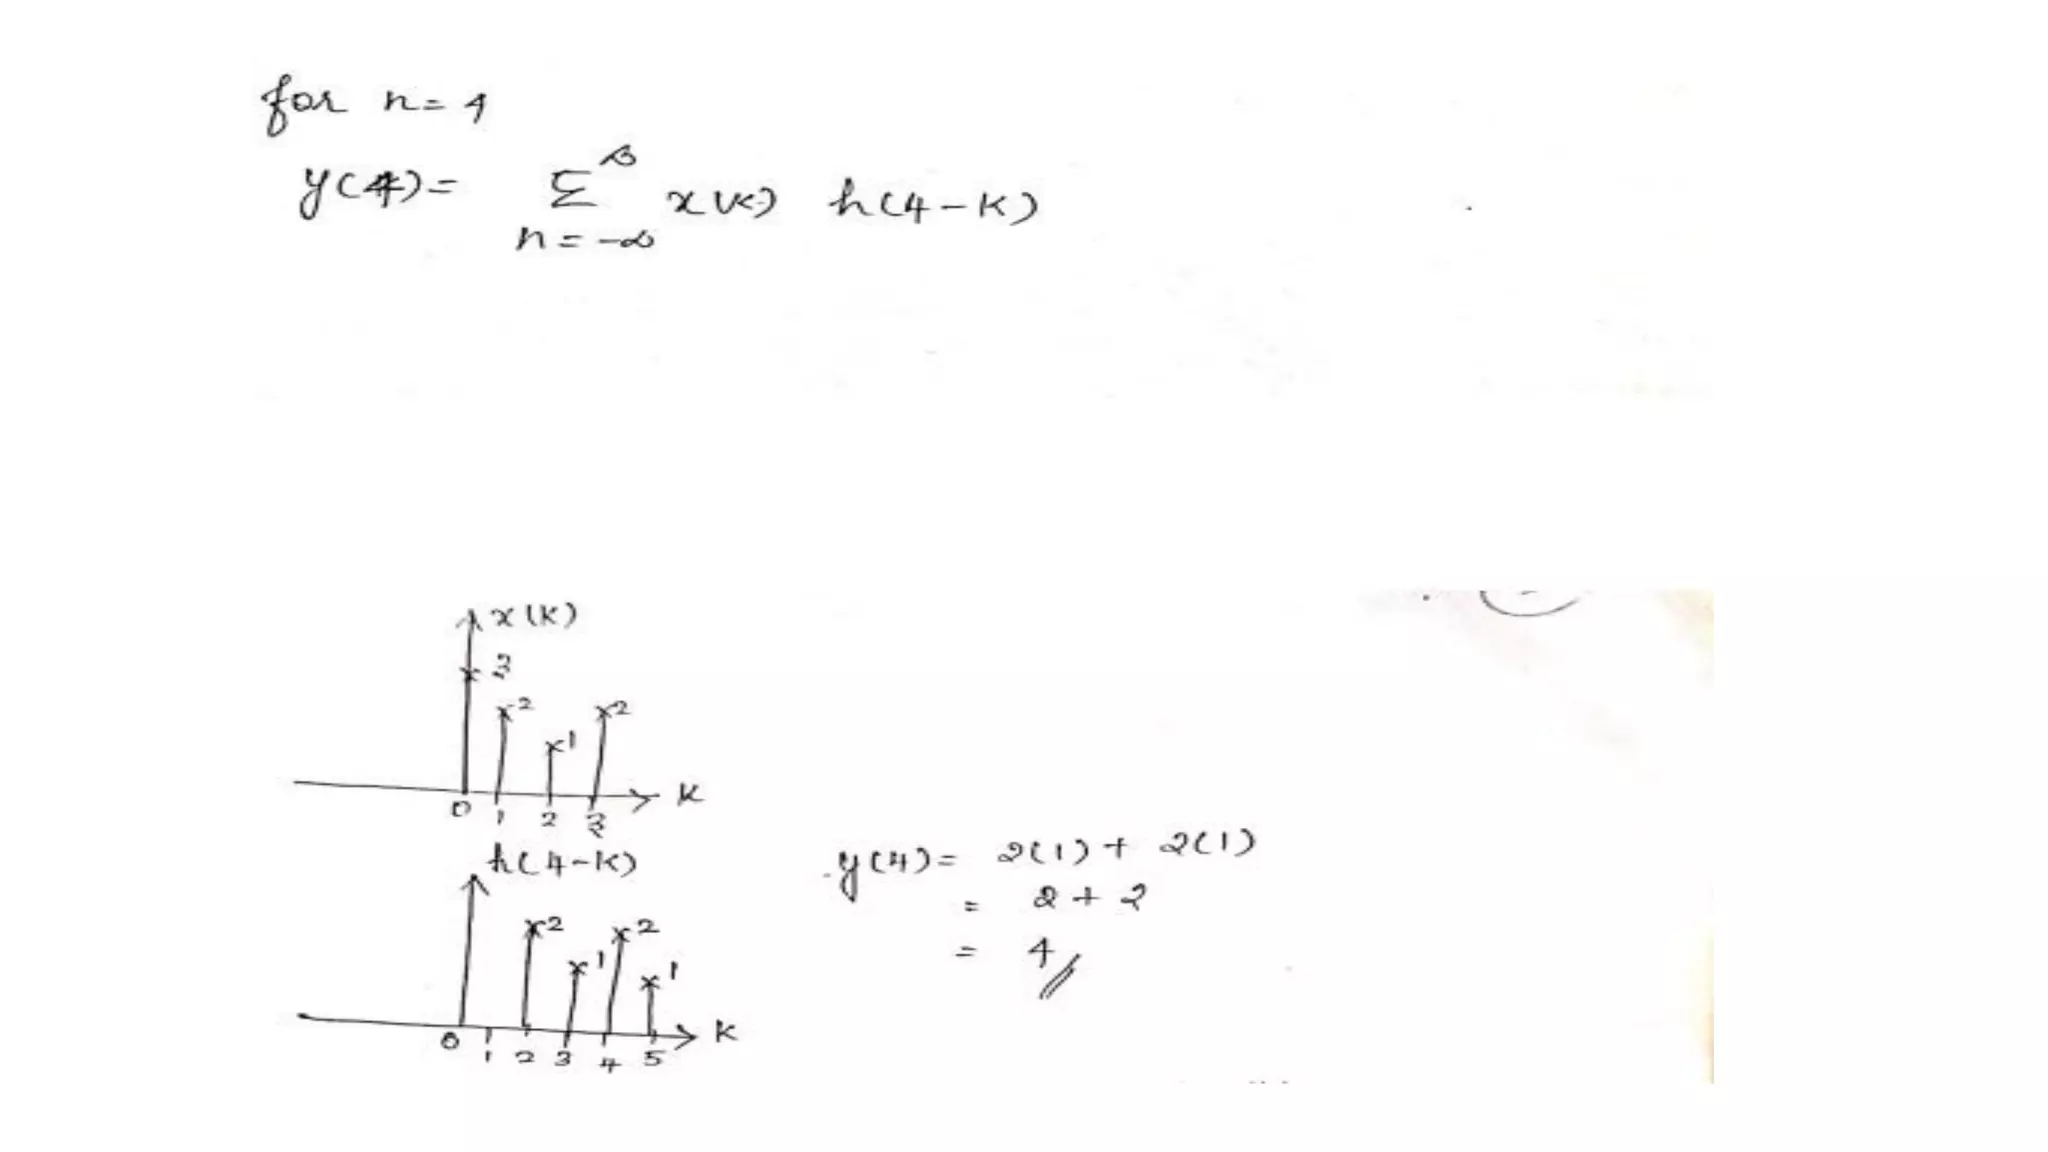 for n=4
y(4)= Σ x(k) h(4-k)
∞
n=-∞
x(k)
3
2
1
2
0 1 2 3
K
h(4-k)
2
1
2
1
0 1 2 3 4 5
K
y(4)= 2(1)+ 2(1)
= 2+2
= 4//